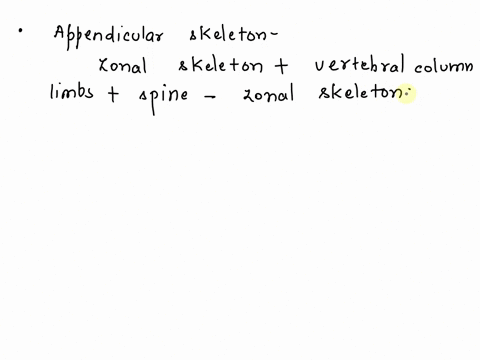 • Appendicular skeleton-
zonal skeleton + vertebral column
limbs + spine - zonal skeleton.